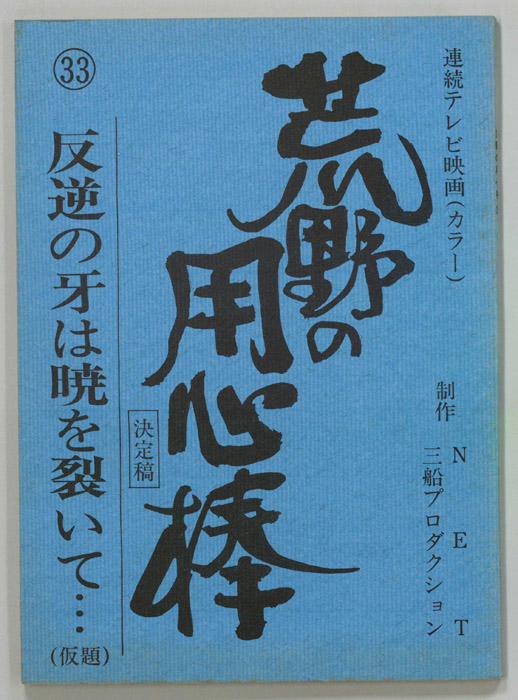 連続テレビ映画(カラー)
制作 NET
三船プロダクション
荒野の
用心棒
決定稿
㉝
反逆の牙は暁を裂いて…
(仮題)